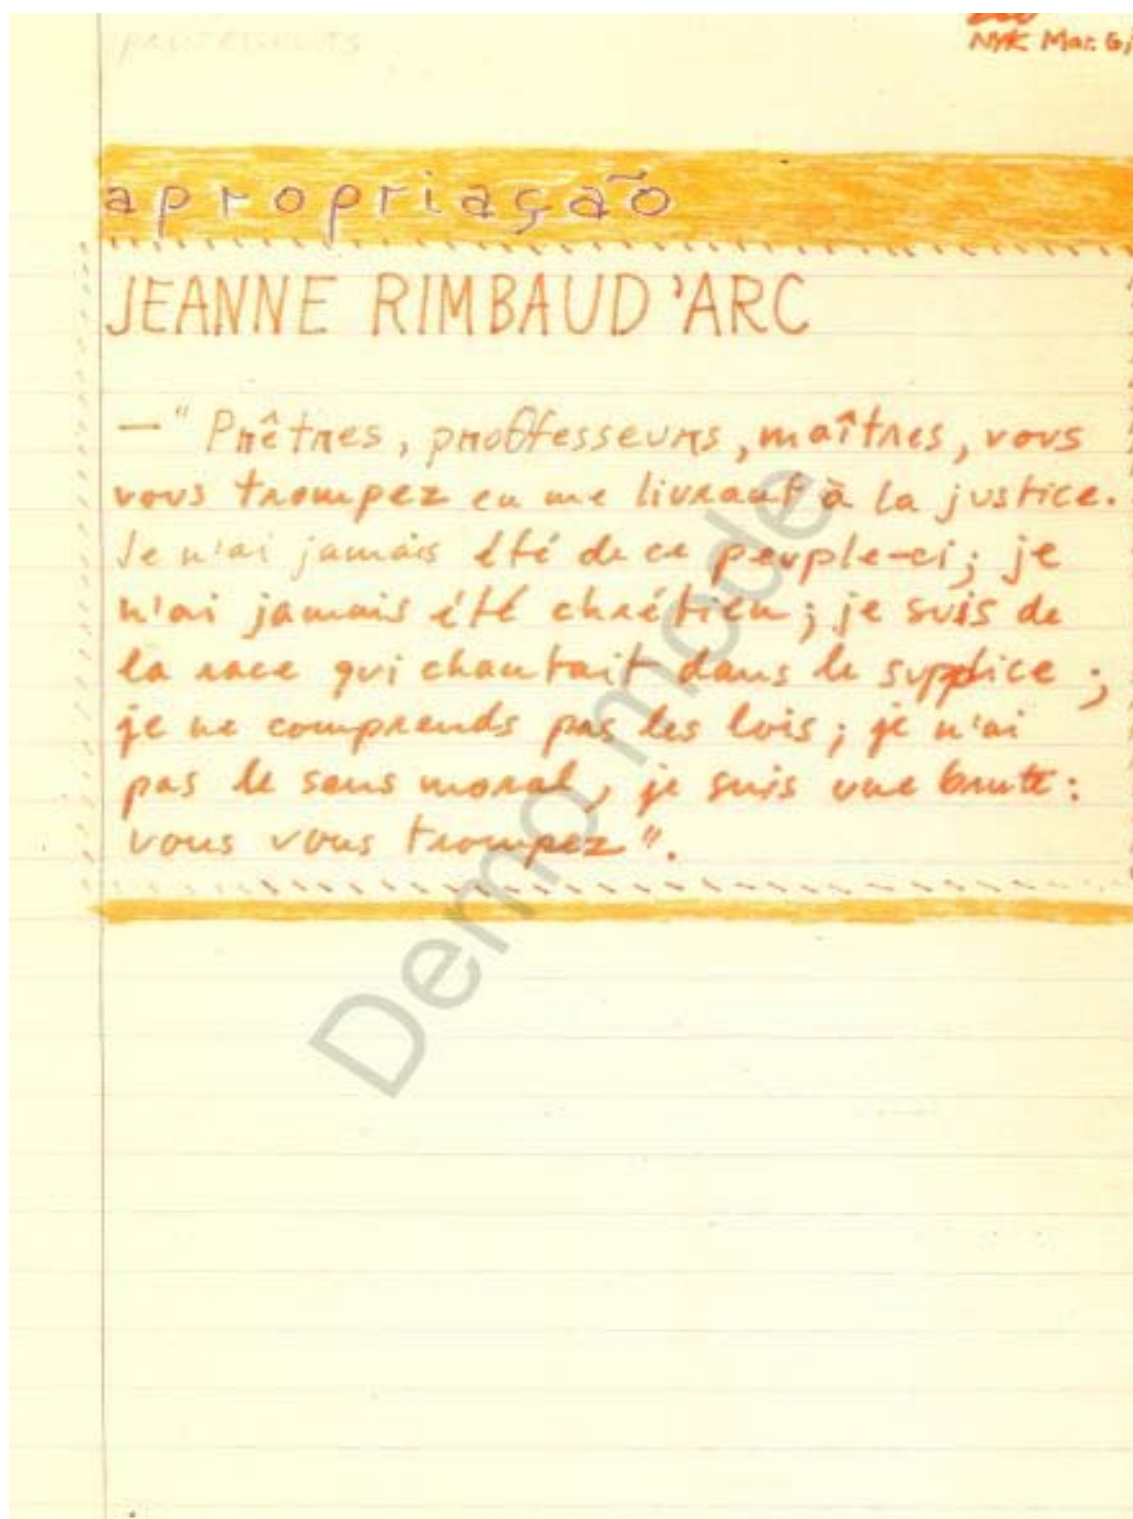 professeurs
NYK Mar. 6,
apropriação
JEANNE RIMBAUD'ARC
—" Prêtres, proffesseurs, maîtres, vous
vous trompez en me livrant à la justice.
Je n'ai jamais été de ce peuple-ci; je
n'ai jamais été chrétien; je suis de
la race qui chantait dans le supplice ;
je ne comprends pas les lois; je n'ai
pas le sens moral, je suis une brute:
vous vous trompez".
Demo mode